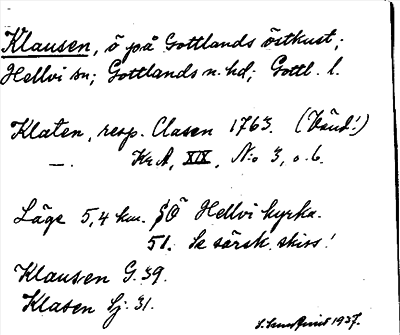 Klausen, ö på Gottlands östkust;
Hellvi sn; Gottlands n. hd; Gottl. l.
Klaten, resp. Clasen 1763. (Vänd!)
—. Kr A, XIX, N:o 3, o. b.
Läge 5,4 km. SÖ Hellvi kyrka.
51. Se särsk. skiss!
Klausen G. 39.
Klasen Sj. 31.
1937.